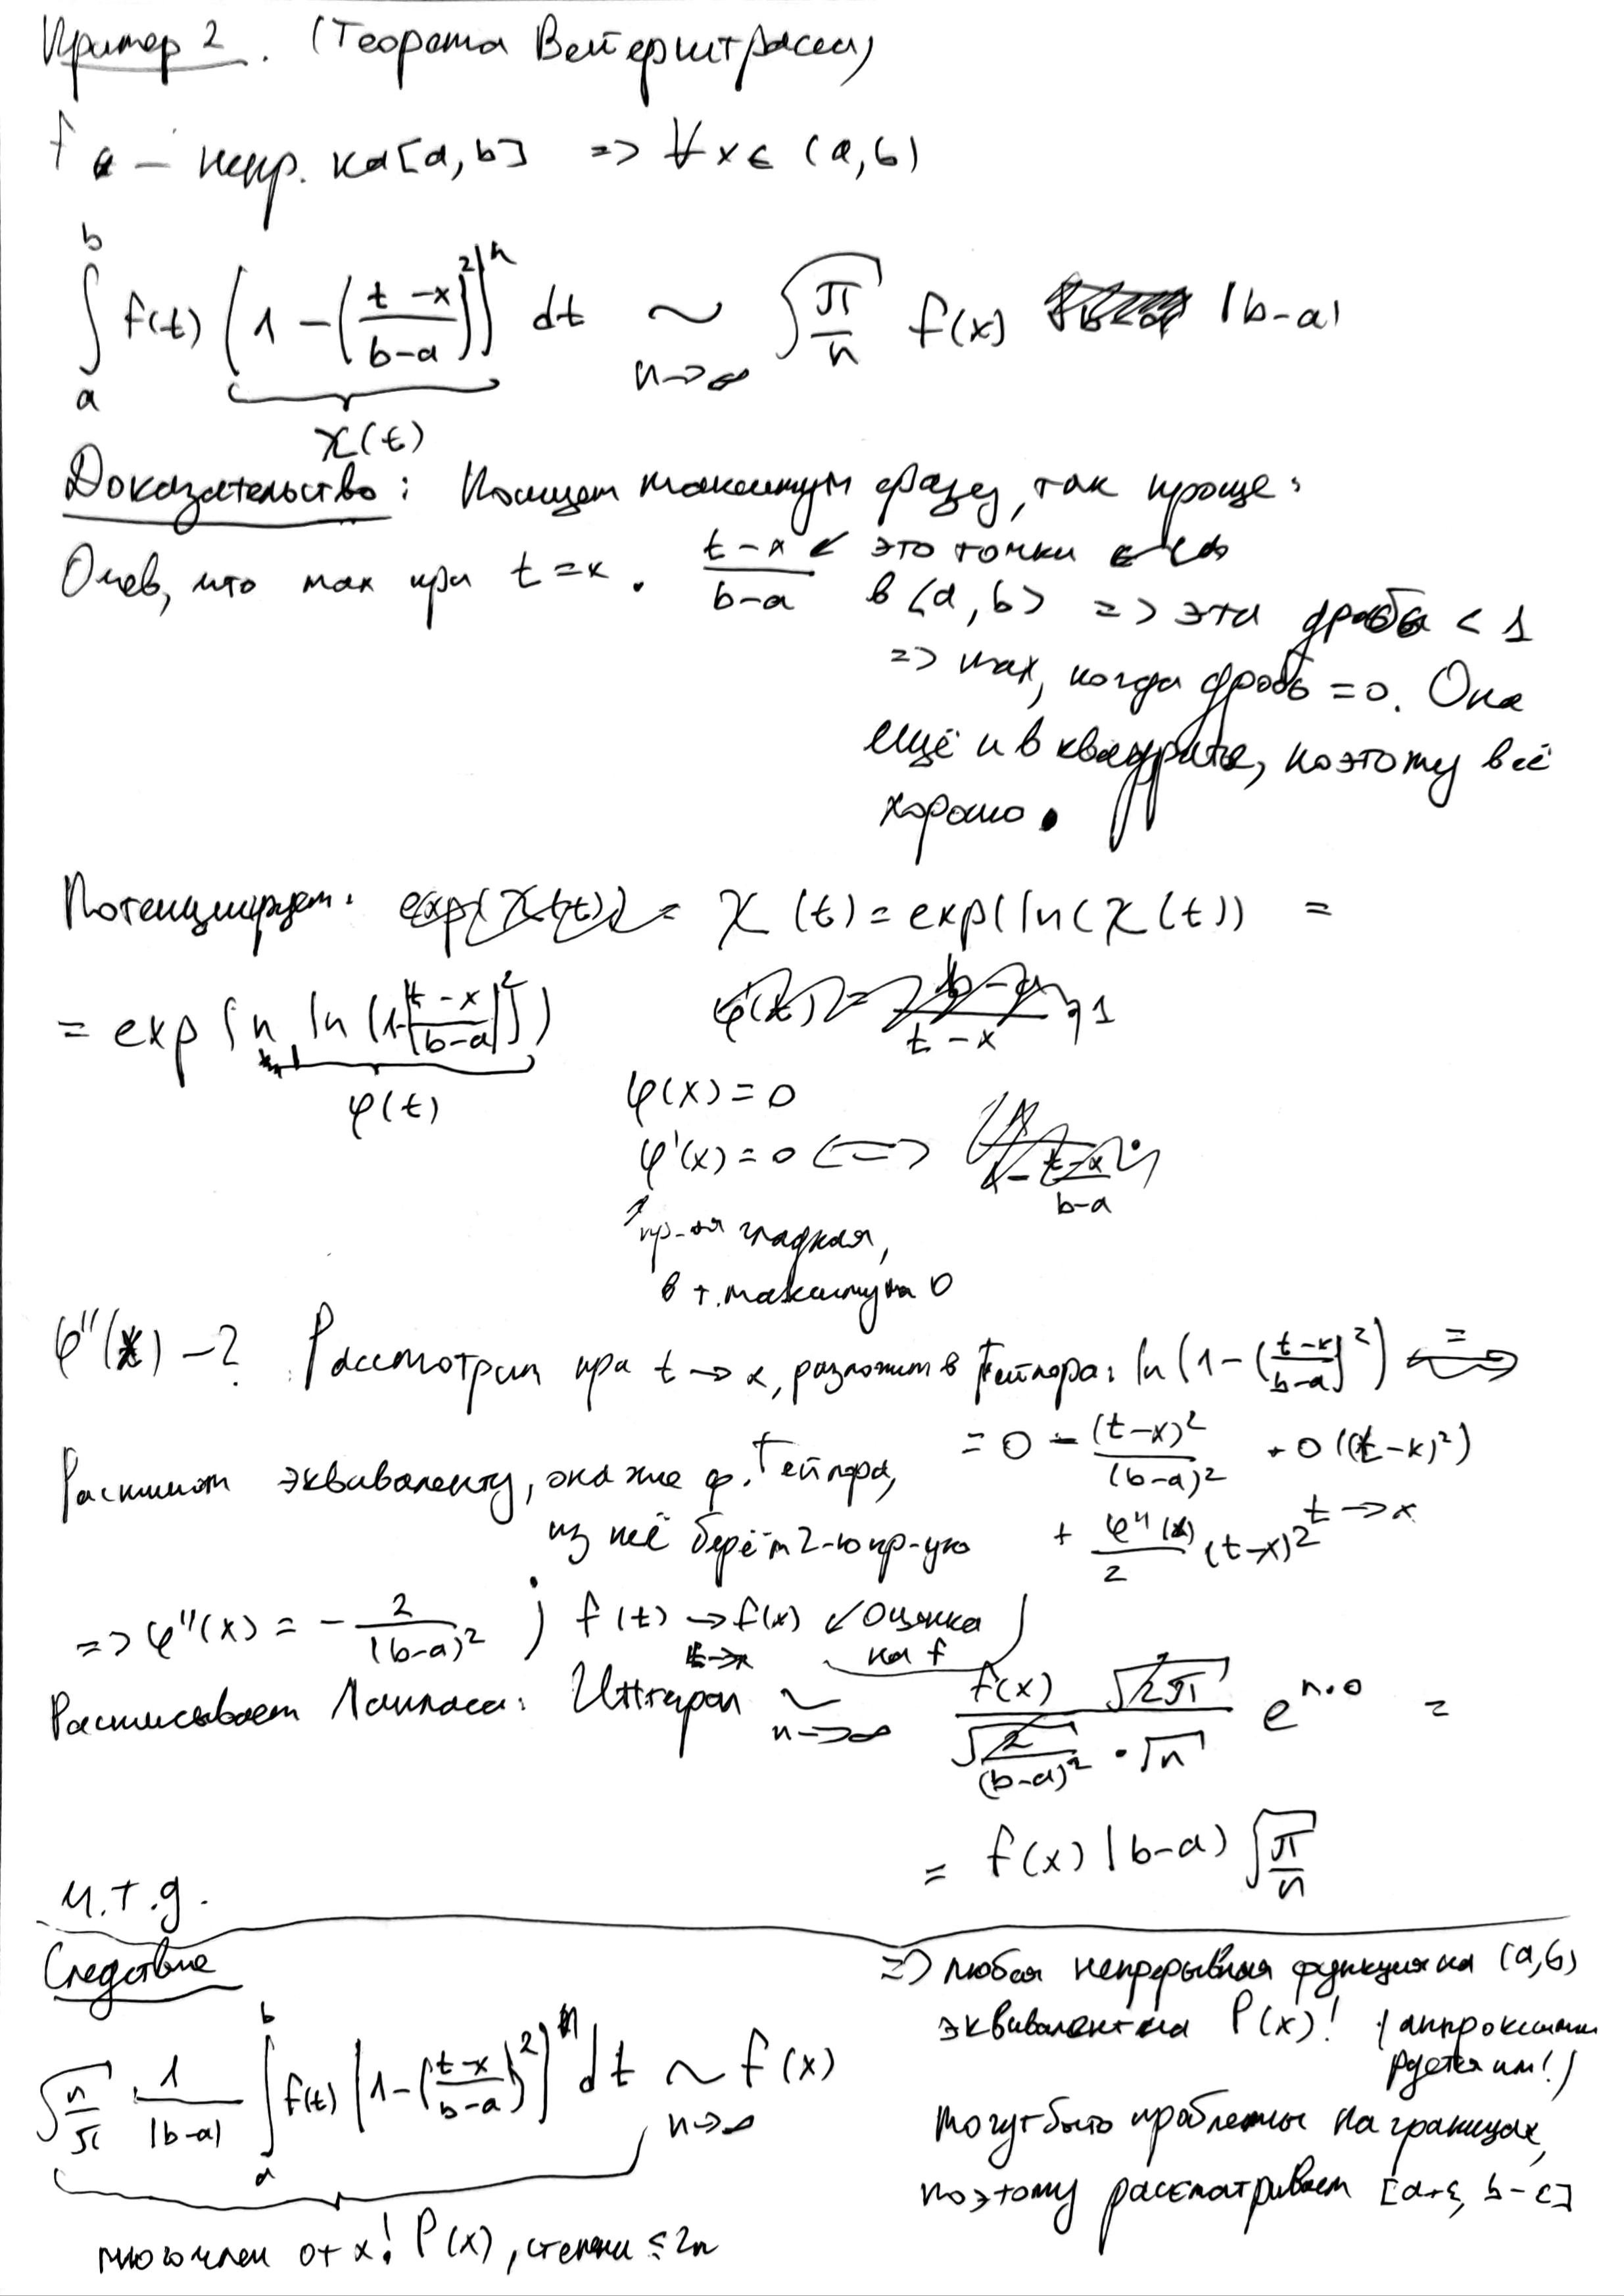 Пример 2. (Теорема Вейерштрасса)
f – непр. на [a,b] => ∀ x ∈ (a,b)
∫_a^b f(t) (1 - ((t-x)/(b-a))^2)^n dt ~_{n→∞} √(π/n) f(x) (b-a)
χ(t)
Доказательство: Поищем максимум фазы, так проще:
Очев, что max при t = x. (t-x)/(b-a) ↙ это точки
в (a,b) => эта дробь < 1
=> max, когда дробь = 0. Она
ещё и в квадрате, поэтому всё
хорошо.
Потенцируем: χ(t) = exp(ln(χ(t)) =
= exp(n ln(1-((t-x)/(b-a))^2))
φ(t)
φ(x) = 0
φ'(x) = 0
↑ пр-ая гладкая,
в т. максимума 0
φ''(x) - ? Рассмотрим при t → x, разложим в Тейлора: ln(1 - ((t-x)/(b-a))^2) =
= 0 - (t-x)^2/(b-a)^2 + o((t-x)^2)
t → x
Распишем эквиваленту, она же ф. Тейлора,
из неё берём 2-ю пр-ую + φ''(x)/2 (t-x)^2
=> φ''(x) = - 2/(b-a)^2 ; f(t) →_{t→x} f(x) ↙ Оценка на f
Расписываем Лапласа: Интеграл ~_{n→∞} f(x) √(2π) / (√(2/(b-a)^2) · √n) e^{n·0} =
= f(x) (b-a) √(π/n)
ч.т.д.
Следствие
√(n/π) 1/(b-a) ∫_a^b f(t) (1-((t-x)/(b-a))^2)^n dt ~_{n→∞} f(x)
многочлен от x! P(x), степени ≤ 2n
=> любая непрерывная функция на (a,b)
эквивалентна P(x)! (аппроксими
руется им!)
могут быть проблемы на границах,
поэтому рассматриваем [a+ε, b-ε]